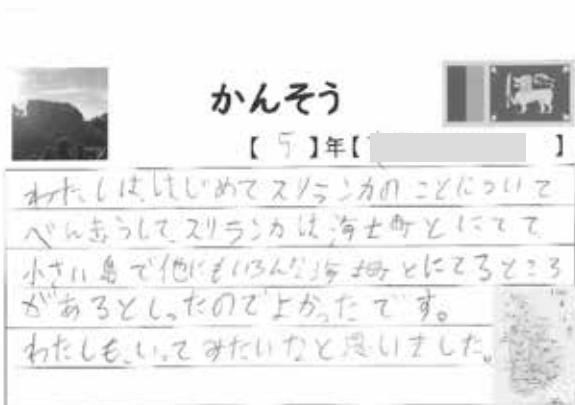 かんそう
【5】年【 】
わたしは、はじめてスリランカのことについて
べんきょうして、スリランカは海士町とにてて
小さい島で他にもいろんな海士町とにてるところ
があるとしったのでよかったです。
わたしも、いってみたいなと思いました。